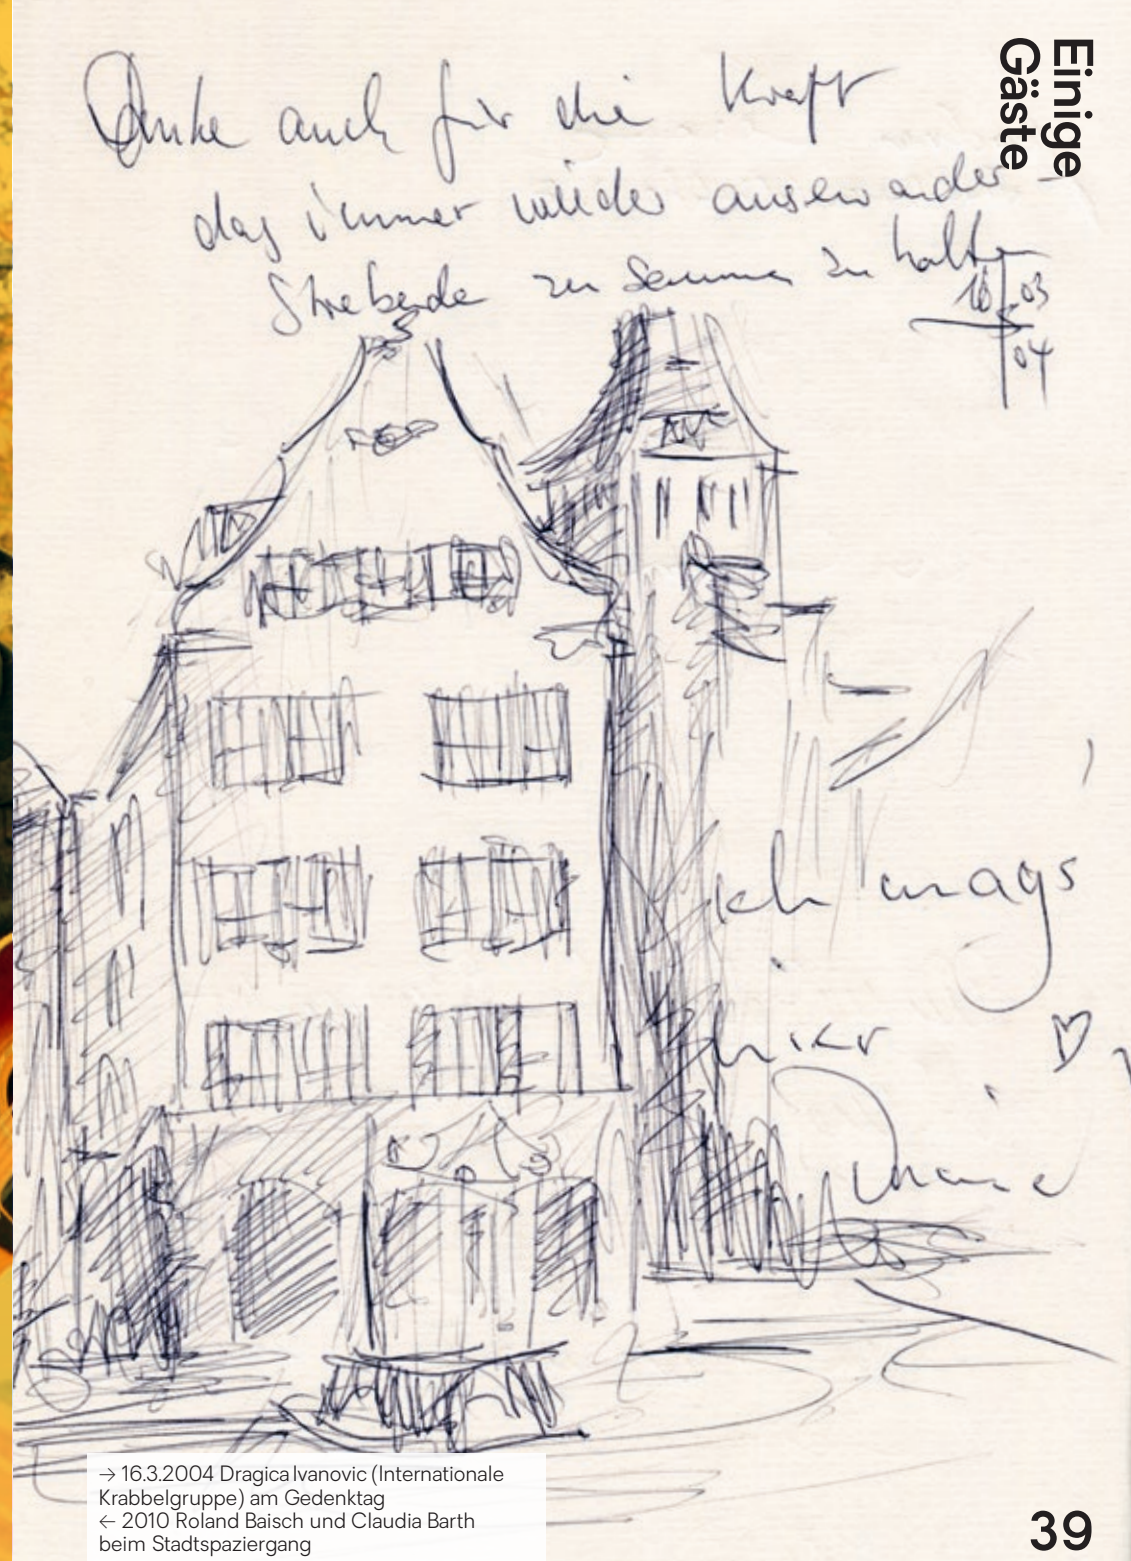 Einige
Gäste
Danke auch für die Kraft
das immer wieder auseinander-
Strebende zusammen zu halten
16.03
04
ich mags
hier ♡
→ 16.3.2004 Dragica Ivanovic (Internationale
Krabbelgruppe) am Gedenktag
← 2010 Roland Baisch und Claudia Barth
beim Stadtspaziergang
39